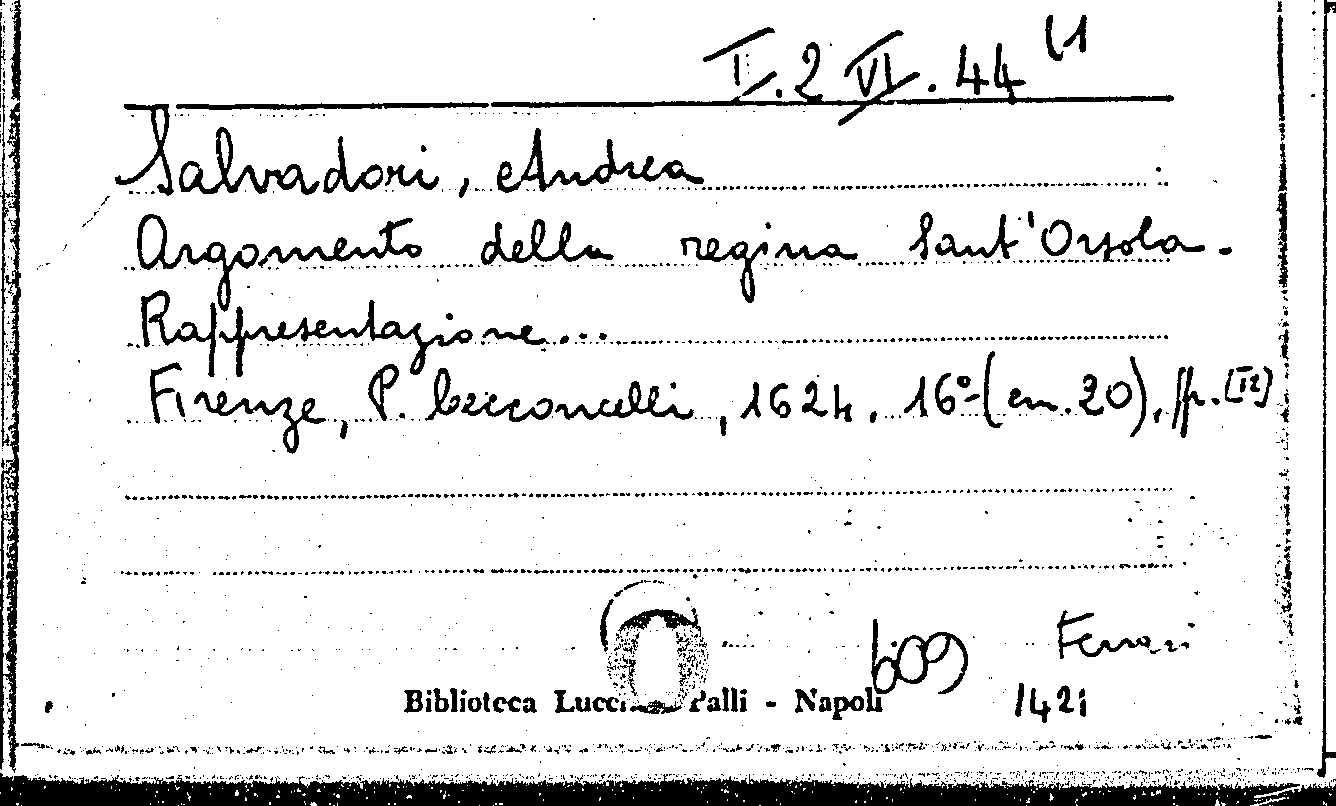 I.2 VI.44 (1
Salvadori, Andrea
Argomento della regina Sant'Orsola.
Rappresentazione...
Firenze, P. Cecconcelli, 1624. 16º (cm. 20), pp. [12]
609 Ferrari
Biblioteca Lucchesi Palli - Napoli
1421